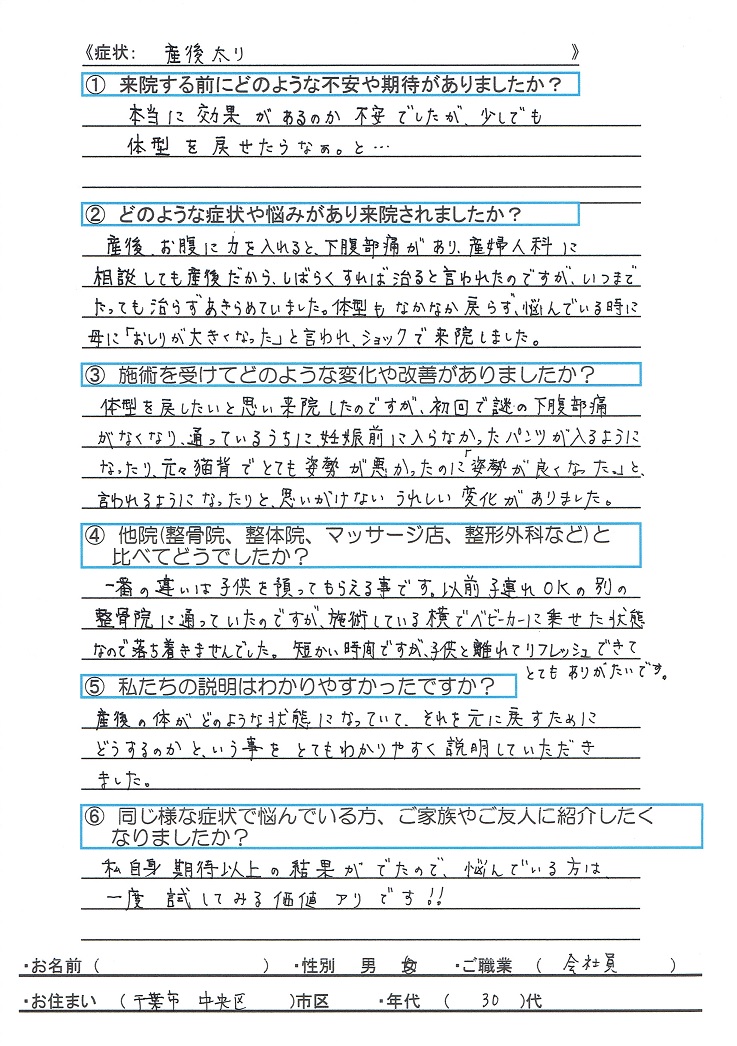 《症状: 産後太り 》
① 来院する前にどのような不安や期待がありましたか？
本当に効果があるのか不安でしたが、少しでも
体型を戻せたらなぁ。と…
② どのような症状や悩みがあり来院されましたか？
産後、お腹に力を入れると、下腹部痛があり、産婦人科に
相談しても産後だから、しばらくすれば治ると言われたのですが、いつまで
たっても治らずあきらめていました。体型もなかなか戻らず、悩んでいる時に
母に「おしりが大きくなった」と言われ、ショックで来院しました。
③ 施術を受けてどのような変化や改善がありましたか？
体型を戻したいと思い来院したのですが、初回で謎の下腹部痛
がなくなり、通っているうちに、妊娠前に入らなかったパンツが入るように
なったり、元々猫背でとても姿勢が悪かったのに「姿勢が良くなった。」と、
言われるようになったりと、思いがけないうれしい変化がありました。
④ 他院(整骨院、整体院、マッサージ店、整形外科など)と
比べてどうでしたか？
一番の違いは子供を預ってもらえる事です。以前子連れOKの別の
整骨院に通っていたのですが、施術している横でベビーカーに乗せた状態
なので落ち着きませんでした。短かい時間ですが、子供と離れてリフレッシュできて
とてもありがたいです。
⑤ 私たちの説明はわかりやすかったですか？
産後の体がどのような状態になっていて、それを元に戻すために
どうするのかと、いう事をとてもわかりやすく説明していただき
ました。
⑥ 同じ様な症状で悩んでいる方、ご家族やご友人に紹介したく
なりましたか？
私自身期待以上の結果がでたので、悩んでいる方は、
一度試してみる価値アリです!!
・お名前（ ） ・性別 男 女 ・ご職業 （ 会社員 ）
・お住まい （千葉市 中央区 ）市区 ・年代 （ 30 ）代